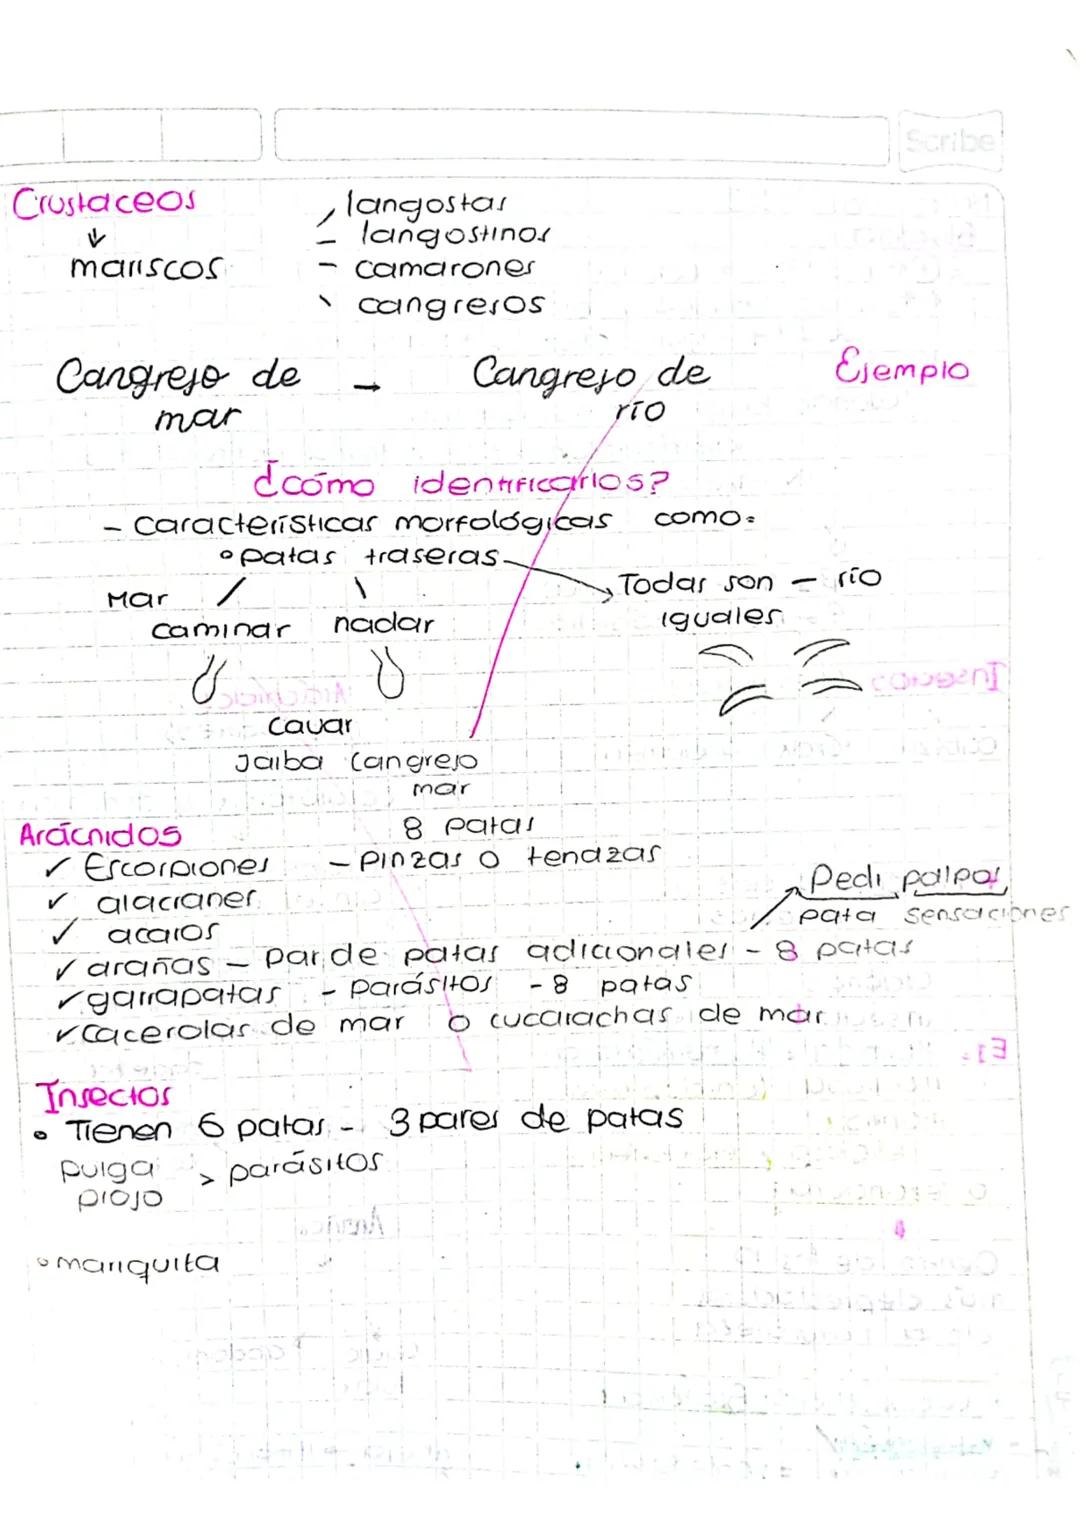 Scribe
Crustaceos
↓
mariscos
- langostas
- langostinos
- camarones
- cangrejos
Cangrejo de mar → Cangrejo de río
Ejemplo
¿cómo identificarlos?
- características morfológicas como:
° patas traseras → Todas son iguales - río
Mar / \
caminar nadar
cavar
Jaiba Cangrejo mar
Arácnidos
8 patas
✓ Escorpiones - pinzas o tenazas
✓ alacranes
✓ acaros
Pedi palpos
pata sensaciones
✓ arañas - par de patas adicionales - 8 patas
✓ garrapatas - parásitos - 8 patas
✓ cacerolas de mar o cucarachas de mar
Insectos
• Tienen 6 patas - 3 pares de patas
pulga
piojo > parásitos
° mariquita